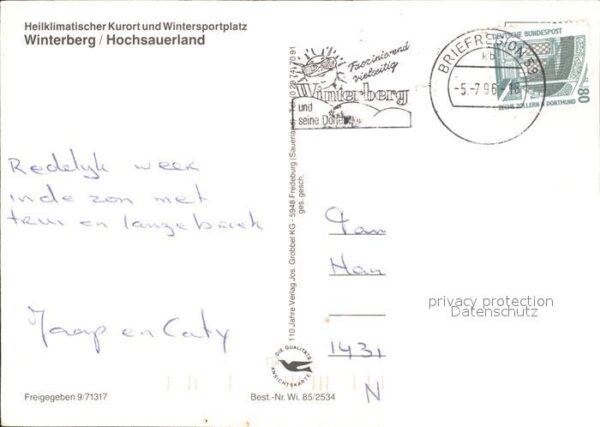 Heilklimatischer Kurort und Wintersportplatz
Winterberg / Hochsauerland
Faszinierend
vielseitig
Winterberg
und
seine Dörfer
BRIEFREGION 59
kb
-5.-7.96-18
DEUTSCHE BUNDESPOST
80
ZECHE ZOLLERN II DORTMUND
Redelijk week
in de zon met
trui en lange broek
Jaap en Caty
110 Jahre Verlag Jos. Grobbel KG - 5948 Fredeburg (Sauerland) - Tel. (0 29 74) 70 91
ges. gesch.
Fam
1431
N
privacy protection
Datenschutz
DIE QUALITÄTS
ANSICHTSKARTE
Freigegeben 9/71317
Best.-Nr. Wi. 85/2534